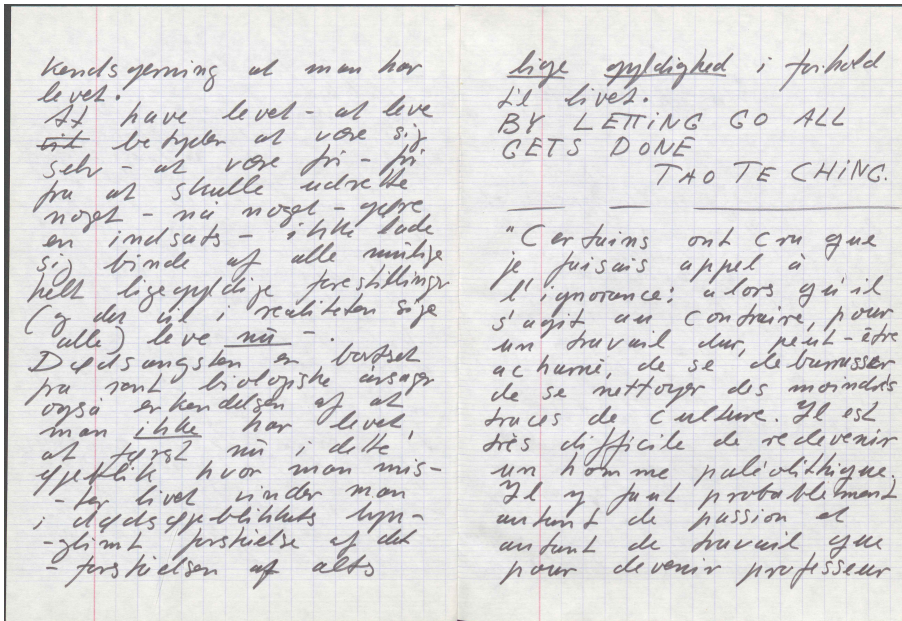 kendsgerning at man har
levet.
At have levet - at leve
betyder at være sig
selv - at være fri - fri
fra at skulle udrette
noget - nå noget - gøre
en indsats - ikke lade
sig binde af alle mulige
helt ligegyldige forestillinger
(og det vil i realiteten sige
alle) leve nu - .
Dødsangsten er bortset
fra rent biologiske årsager
også erkendelsen af at
man ikke har levet,
at først nu i dette
øjeblik hvor man mis-
-ter livet vinder man
i dødsøjeblikkets lyn-
-glimt forståelse af det
- forståelsen af alts
lige gyldighed i forhold
til livet.
BY LETTING GO ALL
GETS DONE
TAO TE CHING.
"Certains ont cru que
je faisais appel à
l'ignorance; alors qu'il
s'agit au contraire, pour
un travail dur, peut-être
acharné, de se debarasser
de se nettoyer des moindres
traces de culture. Il est
très difficile de redevenir
un homme paléolithique.
Il y faut probablement
autant de passion et
autant de travail que
pour devenir professeur